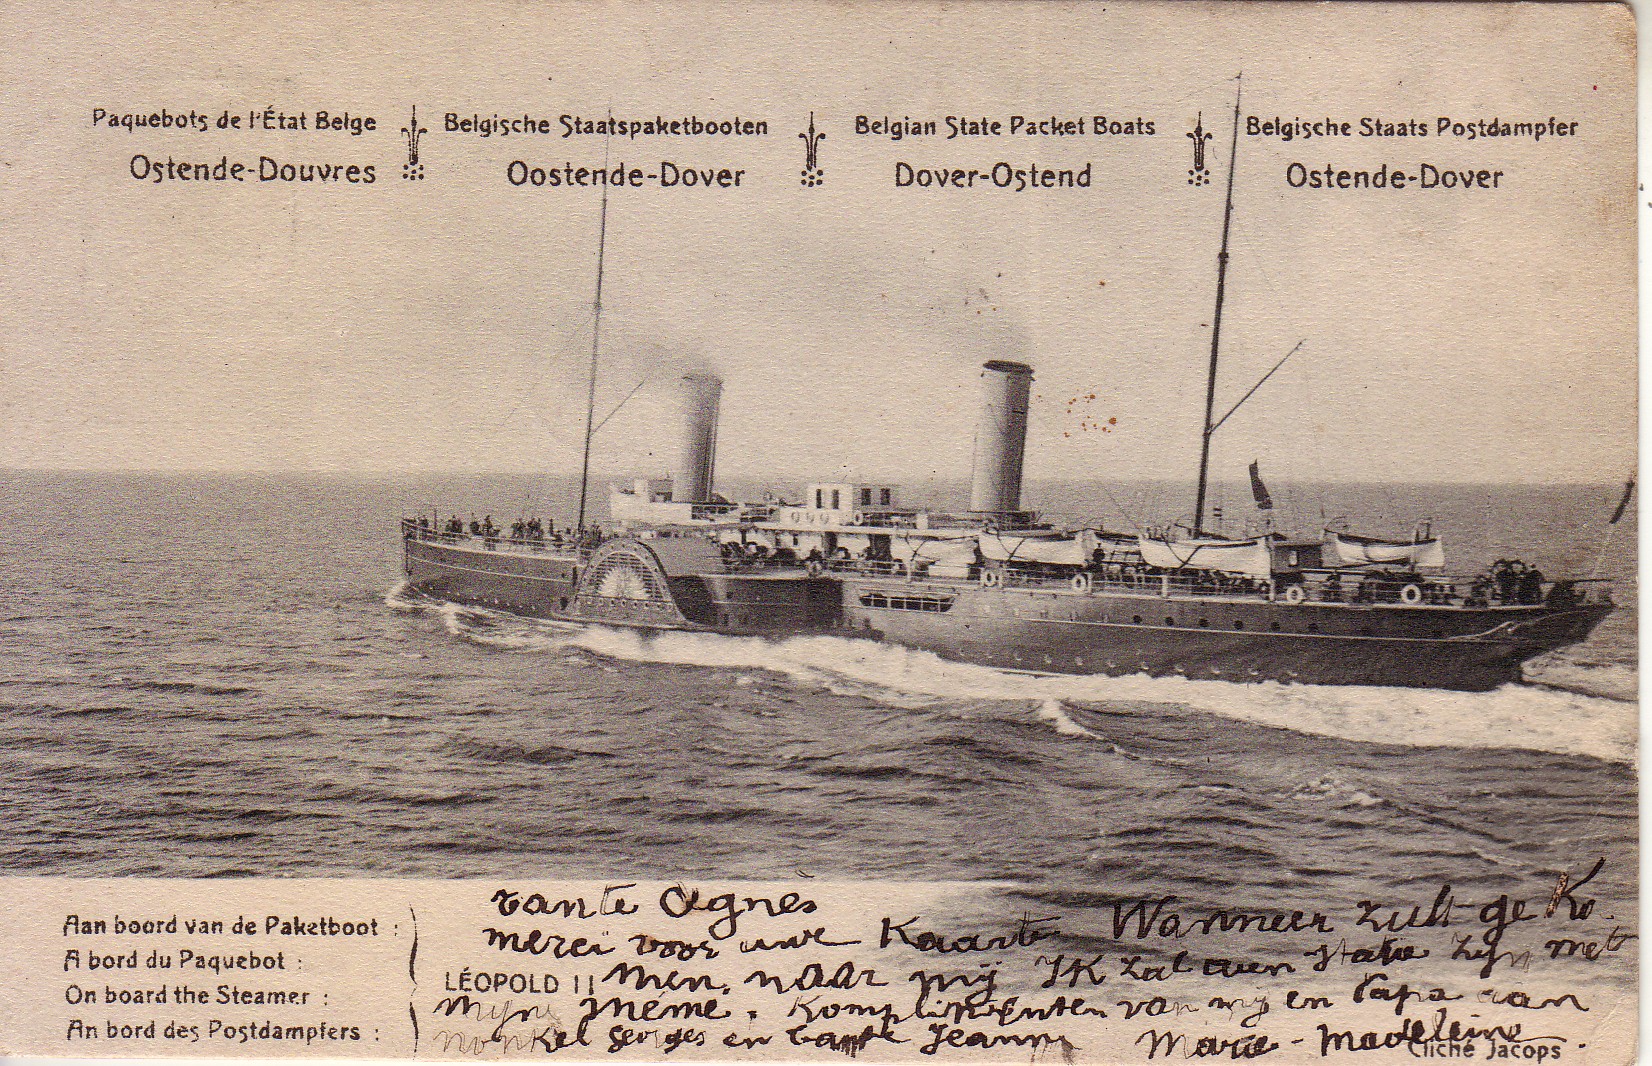 Paquebots de l'État Belge
Ostende-Douvres
Belgische Staatspaketbooten
Oostende-Dover
Belgian State Packet Boats
Dover-Ostend
Belgische Staats Postdampfer
Ostende-Dover
Aan boord van de Paketboot :
A bord du Paquebot :
On board the Steamer :
An bord des Postdampfers :
LÉOPOLD II
tante Agnès
merci voor uwe Kaart Wanneer zult ge Ko
men naar mij Ik zal aan statie zijn met
mijn mémé. Komplimenten van mij en Papa aan
nonkel Georges en tante Jeanne Marie-Madeleine
Cliché Jacops.